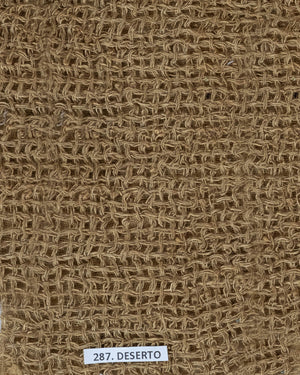 287. DESERTO